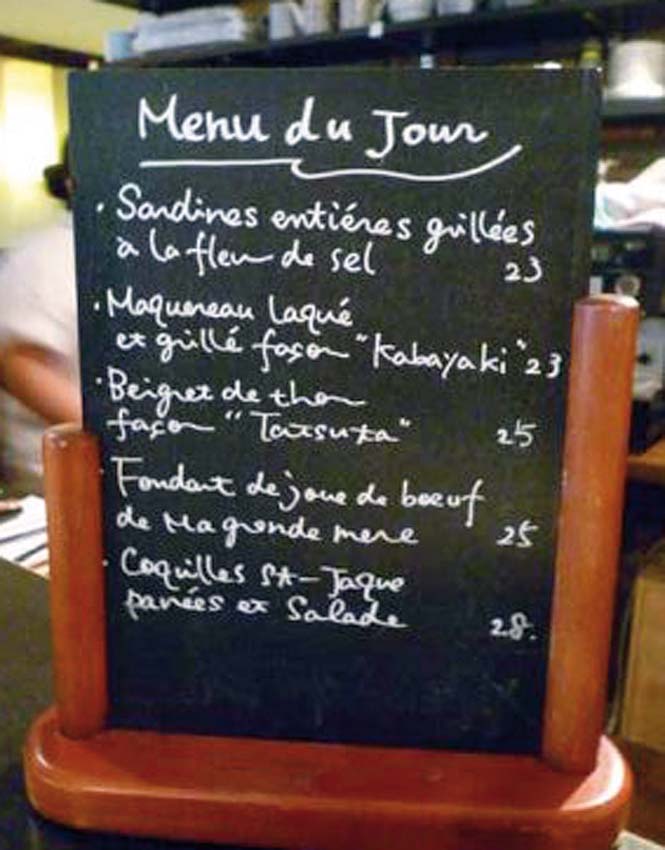 Menu du Jour
· Sardines entiéres grillées
à la fleur de sel 23
· Maquereau laqué
et grillé façon "Kabayaki" 23
· Beignet de thon
façon "Tatsuta" 25
· Fondant de joue de boeuf
de Ma grande mere 25
· Coquilles St-Jaque
panées et Salade 28.